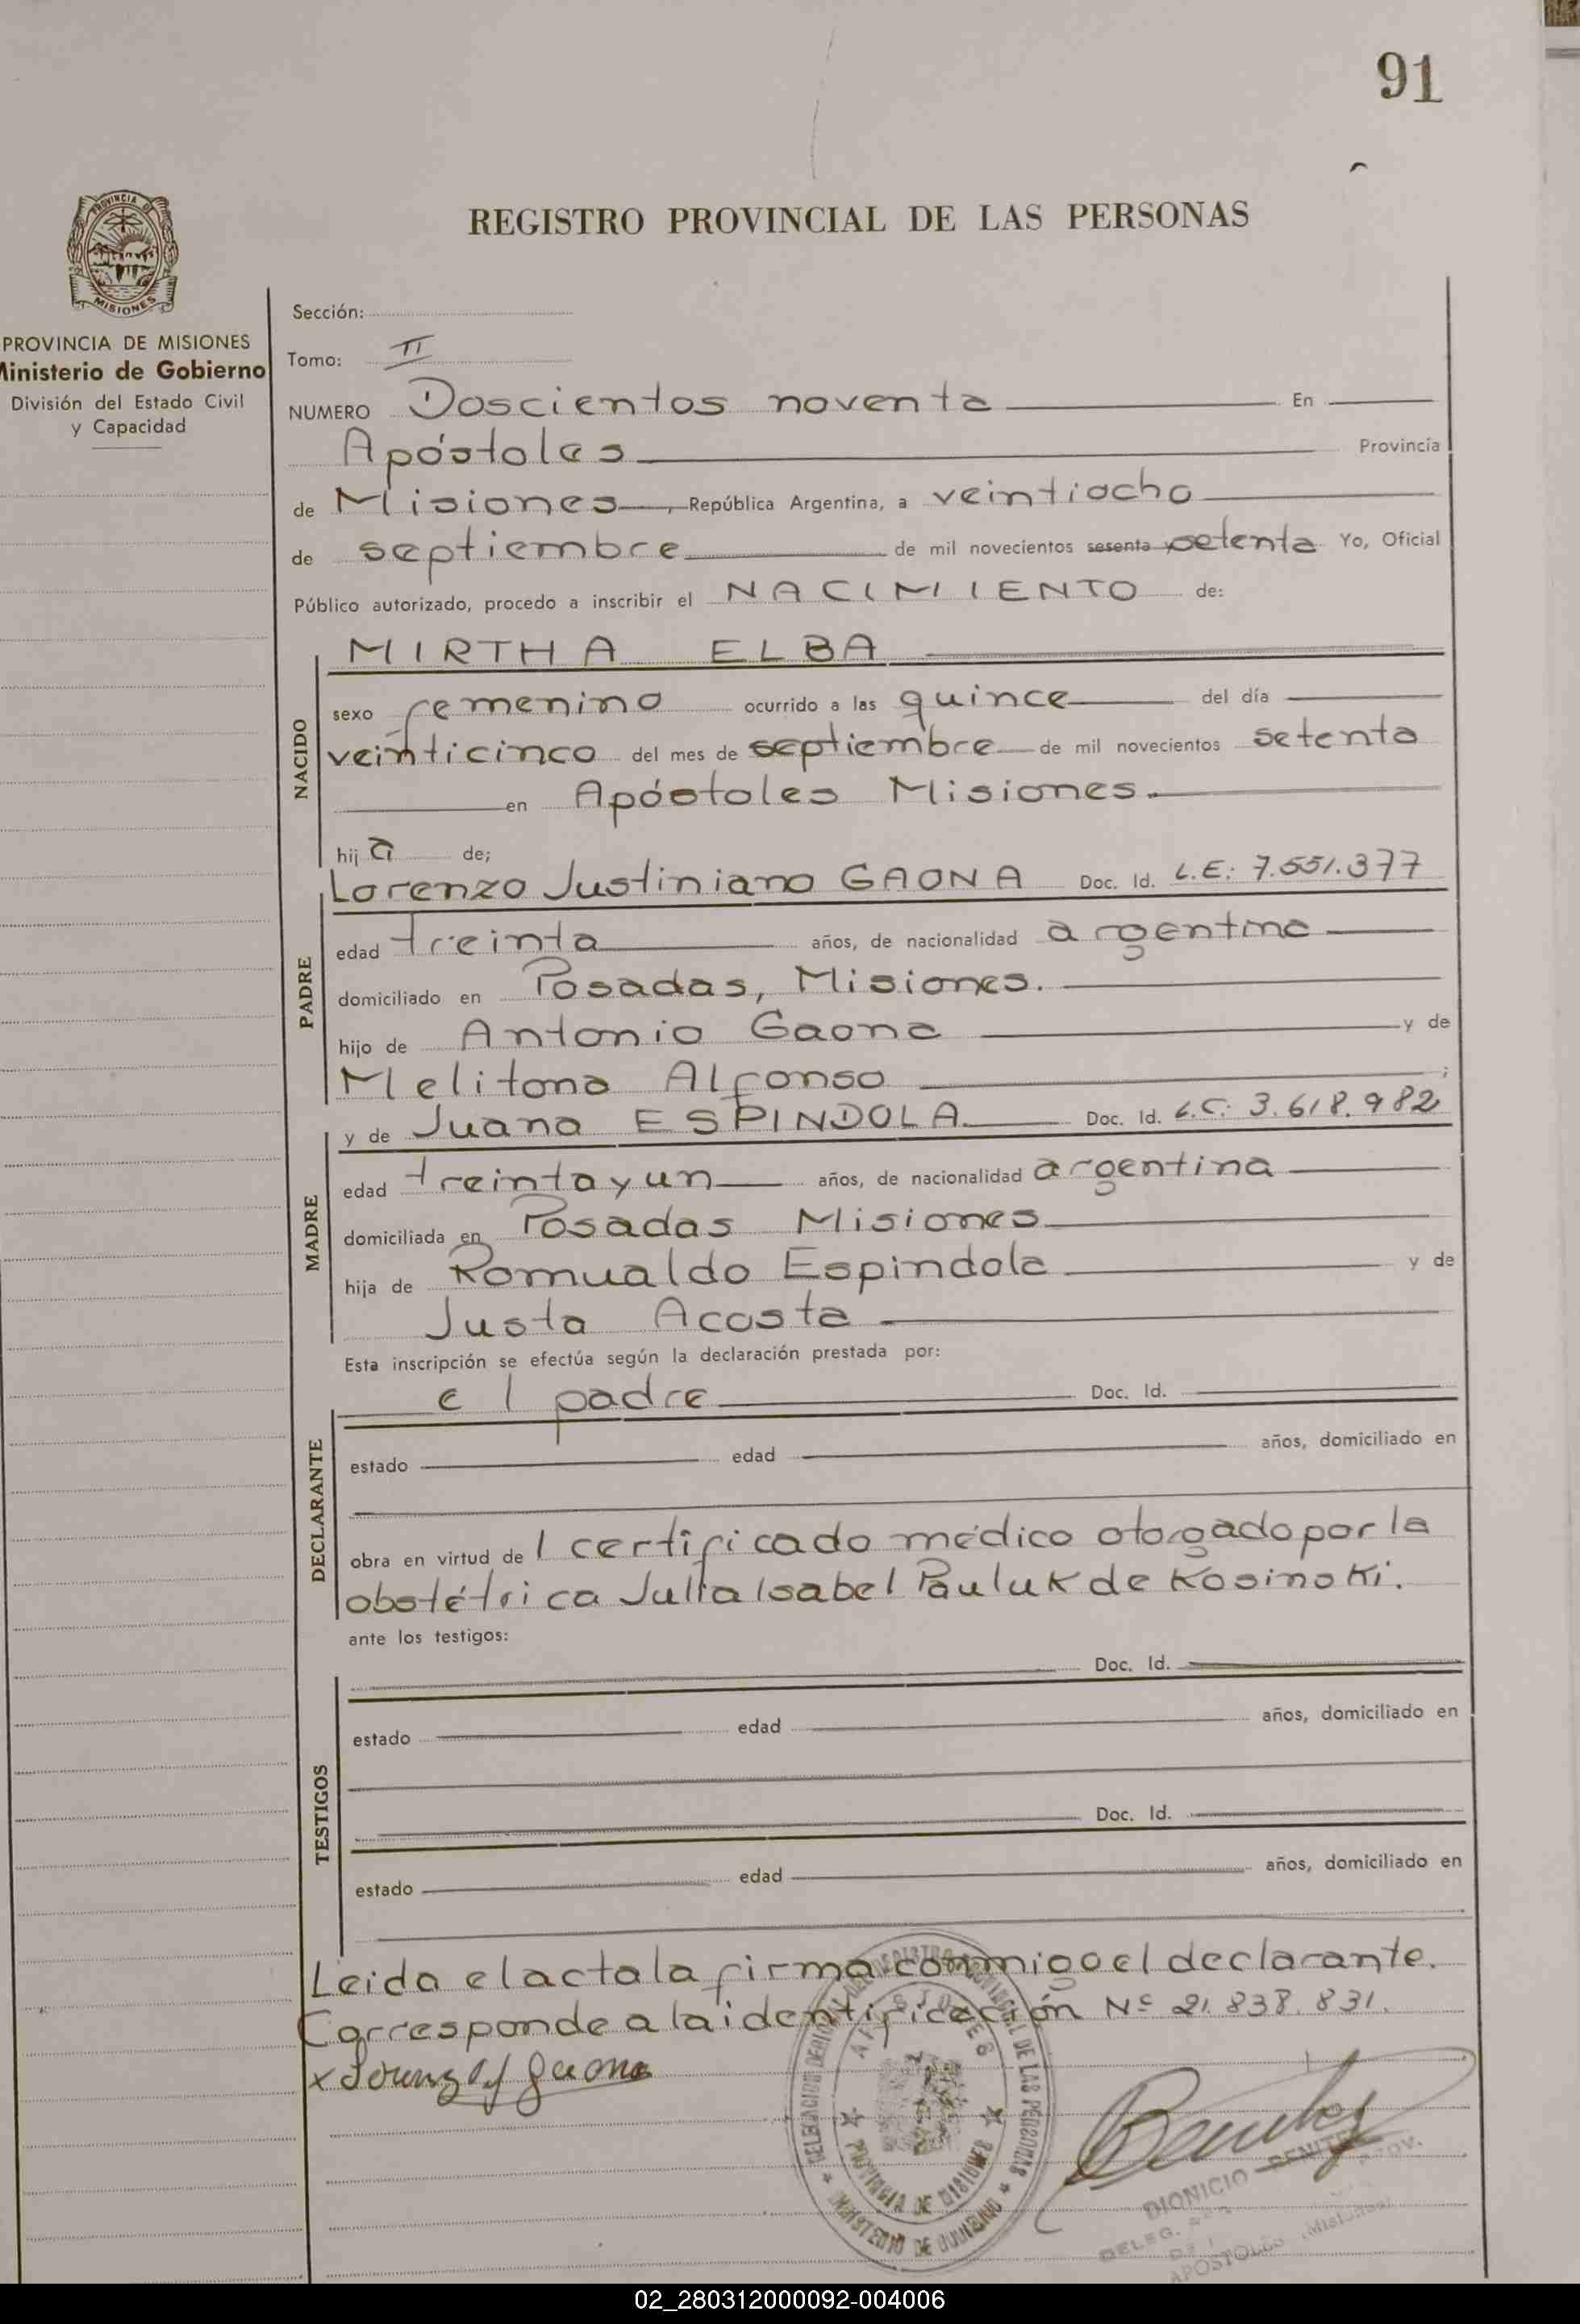 91
REGISTRO PROVINCIAL DE LAS PERSONAS
PROVINCIA DE MISIONES
PROVINCIA DE MISIONES
Ministerio de Gobierno
División del Estado Civil
y Capacidad
Sección:
Tomo: II
NUMERO Doscientos noventa En
Apóstoles Provincia
de Misiones, República Argentina, a veintiocho
de septiembre de mil novecientos sesenta setenta Yo, Oficial
Público autorizado, procedo a inscribir el NACIMIENTO de:
NACIDO
MIRTHA ELBA
sexo femenino ocurrido a las quince del día
veinticinco del mes de septiembre de mil novecientos setenta
en Apóstoles Misiones.
hij a de;
PADRE
Lorenzo Justiniano GAONA Doc. Id. L.E: 7.551.377
edad treinta años, de nacionalidad argentino
domiciliado en Posadas, Misiones.
hijo de Antonio Gaona y de
Melitona Alfonso ;
MADRE
y de Juana ESPINDOLA Doc. Id. L.C: 3.618.982
edad treinta y un años, de nacionalidad argentina
domiciliada en Posadas Misiones
hija de Romualdo Espindola y de
Justa Acosta
Esta inscripción se efectúa según la declaración prestada por:
DECLARANTE
el padre Doc. Id.
estado edad años, domiciliado en
obra en virtud de l certificado médico otorgado por la
obstétrica Julia Isabel Pauluk de Kosinski.
ante los testigos:
TESTIGOS
Doc. Id.
estado edad años, domiciliado en
Doc. Id.
estado edad años, domiciliado en
Leida el acta la firma conmigo el declarante.
Corresponde a la identificación Nº 21.838.831.
x Gaona
APOSTOLES
PROVINCIA DE MISIONES
MINISTERIO DE GOBIERNO
Benitez
DIONICIO BENITEZ
DELEG.
APOSTOLES (Misiones)
02_280312000092-004006